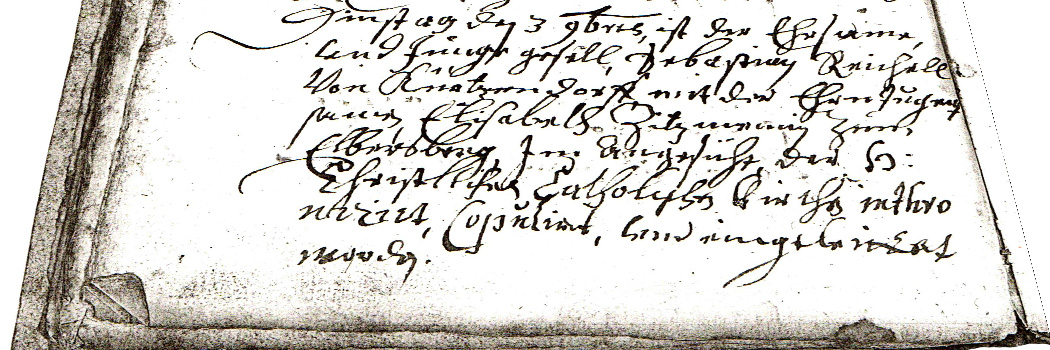 Dinstag den 3 9bris, ist der Ehrsame,
und Junge gesell, Sebastian Reichell
Von Kuntzendorff mit der Ehrn tugent
samen Elisabeth Zitzmanin zum
Elbersberg Im Angesicht der H:
Christlichen Catholischen Kirchen inthro
nizirt, Copulirt, und eingeleittet
worden.